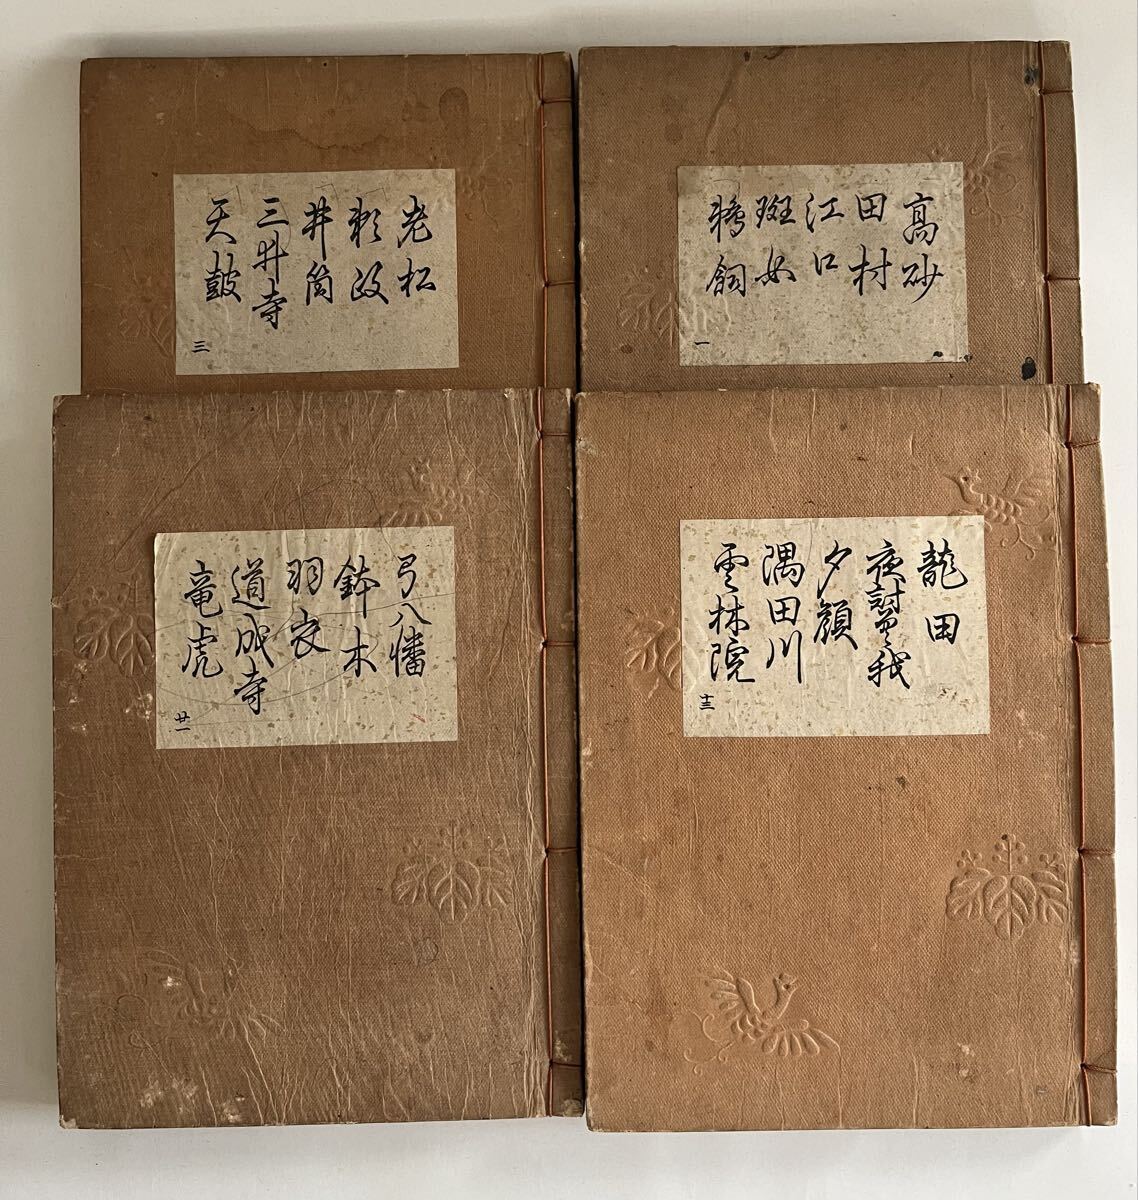 高砂
田村
江口
班女
鵜飼
一
老松
頼政
井筒
三井寺
天鼓
三
龍田
夜討曽我
夕顔
隅田川
雲林院
十三
弓八幡
鉢木
羽衣
道成寺
竜虎
廿一